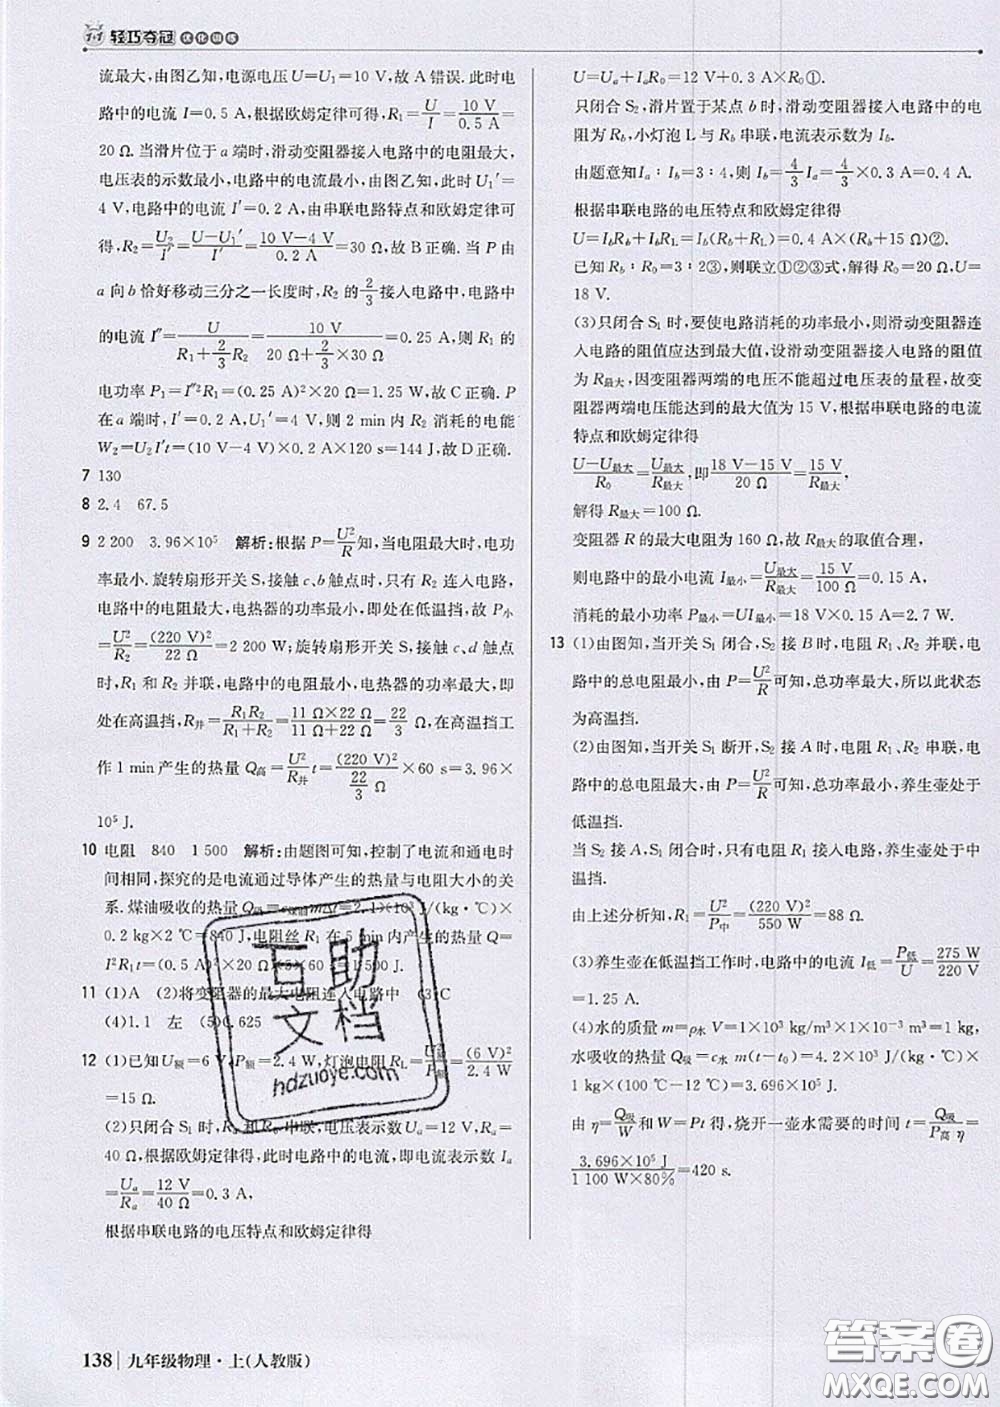 1+1 轻巧夺冠 优化训练
流最大,由图乙知,电源电压U=U₁=10 V,故A错误.此时电
路中的电流I=0.5 A,根据欧姆定律可得,R₁=U/I=10 V/0.5 A=
20 Ω.当滑片位于a端时,滑动变阻器接入电路中的电阻最大,
电压表的示数最小,电路中的电流最小,由图乙知,此时U₁′=
4 V,电路中的电流I′=0.2 A,由串联电路特点和欧姆定律可
得,R₂=U₂/I′=(U-U₁′)/I′=(10 V-4 V)/0.2 A=30 Ω,故B正确.当P由
a向b恰好移动三分之一长度时,R₂的2/3接入电路中,电路中
的电流I″=U/(R₁+2/3R₂)=10 V/(20 Ω+2/3×30 Ω)=0.25 A,则R₁的
电功率P₁=I″²R₁=(0.25 A)²×20 Ω=1.25 W,故C正确.P
在a端时,I′=0.2 A,U₁′=4 V,则2 min内R₂消耗的电能
W₂=U₂I′t=(10 V-4 V)×0.2 A×120 s=144 J,故D正确.
7 130
8 2.4 67.5
9 2 200 3.96×10⁵ 解析:根据P=U²/R知,当电阻最大时,电功
率最小.旋转扇形开关S,接触c、b触点时,只有R₂连入电路,
电路中的电阻最大,电热器的功率最小,即处在低温挡.故P小
=U²/R₂=(220 V)²/22 Ω=2 200 W;旋转扇形开关S,接触c、d触点
时,R₁和R₂并联,电路中的电阻最小,电热器的功率最大,即
处在高温挡,R并=R₁R₂/(R₁+R₂)=(11 Ω×22 Ω)/(11 Ω+22 Ω)=22/3 Ω,在高温挡工
作1 min产生的热量Q高=U²/R并 t=(220 V)²/(22/3 Ω)×60 s=3.96×
10⁵ J.
10 电阻 840 1 500 解析:由题图可知,控制了电流和通电时
间相同,探究的是电流通过导体产生的热量与电阻大小的关
系.煤油吸收的热量Q吸=c煤油mΔt=2.1×10³ J/(kg·℃)×
0.2 kg×2 ℃=840 J,电阻丝R₁在5 min内产生的热量Q=
I²R₁t=(0.5 A)²×20 Ω×(5×60 s)=1 500 J.
11 (1)A (2)将变阻器的最大电阻连入电路中 (3)C
(4)1.1 左 (5)0.625
12 (1)已知U额=6 V,P额=2.4 W,灯泡电阻RL=U额²/P额=(6 V)²/2.4 W
=15 Ω.
(2)只闭合S₁时,Rₐ和R₀串联,电压表示数Uₐ=12 V,Rₐ=
40 Ω,根据欧姆定律得,此时电路中的电流,即电流表示数Iₐ
=Uₐ/Rₐ=12 V/40 Ω=0.3 A,
根据串联电路的电压特点和欧姆定律得
U=Uₐ+IₐR₀=12 V+0.3 A×R₀①.
只闭合S₂,滑片置于某点b时,滑动变阻器接入电路中的电
阻为R_b,小灯泡L与R_b串联,电流表示数为I_b.
由题意知Iₐ:I_b=3:4,则I_b=4/3Iₐ=4/3×0.3 A=0.4 A.
根据串联电路的电压特点和欧姆定律得
U=I_bR_b+I_bRL=I_b(R_b+RL)=0.4 A×(R_b+15 Ω)②.
已知R_b:R₀=3:2③,则联立①②③式,解得R₀=20 Ω,U=
18 V.
(3)只闭合S₁时,要使电路消耗的功率最小,则滑动变阻器连
入电路的阻值应达到最大值,设滑动变阻器接入电路的阻值
为R最大,因变阻器两端的电压不能超过电压表的量程,故变
阻器两端电压能达到的最大值为15 V,根据串联电路的电流
特点和欧姆定律得
(U-U最大)/R₀=U最大/R最大,即(18 V-15 V)/20 Ω=15 V/R最大,
解得R最大=100 Ω.
变阻器R的最大电阻为160 Ω,故R最大的取值合理,
则电路中的最小电流I最小=U最大/R最大=15 V/100 Ω=0.15 A,
消耗的最小功率P最小=UI最小=18 V×0.15 A=2.7 W.
13 (1)由图知,当开关S₁闭合,S₂接B时,电阻R₁、R₂并联,电
路中的总电阻最小,由P=U²/R可知,总功率最大,所以此状态
为高温挡.
(2)由图知,当开关S₁断开,S₂接A时,电阻R₁、R₂串联,电
路中的总电阻最大,由P=U²/R可知,总功率最小,养生壶处于
低温挡.
当S₂接A,S₁闭合时,只有电阻R₁接入电路,养生壶处于中
温挡.
由上述分析知,R₁=U²/P中=(220 V)²/550 W=88 Ω.
(3)养生壶在低温挡工作时,电路中的电流I低=P低/U=275 W/220 V
=1.25 A.
(4)水的质量m=ρ水V=1×10³ kg/m³×1×10⁻³ m³=1 kg,
水吸收的热量Q吸=c水m(t-t₀)=4.2×10³ J/(kg·℃)×
1 kg×(100 ℃-12 ℃)=3.696×10⁵ J.
由η=Q吸/W和W=Pt得,烧开一壶水需要的时间t=Q吸/P高η=
3.696×10⁵ J/(1 100 W×80%)=420 s.
互助
文档
hdzuoye.com
138 九年级物理·上(人教版)
答案圈
MXQE.COM